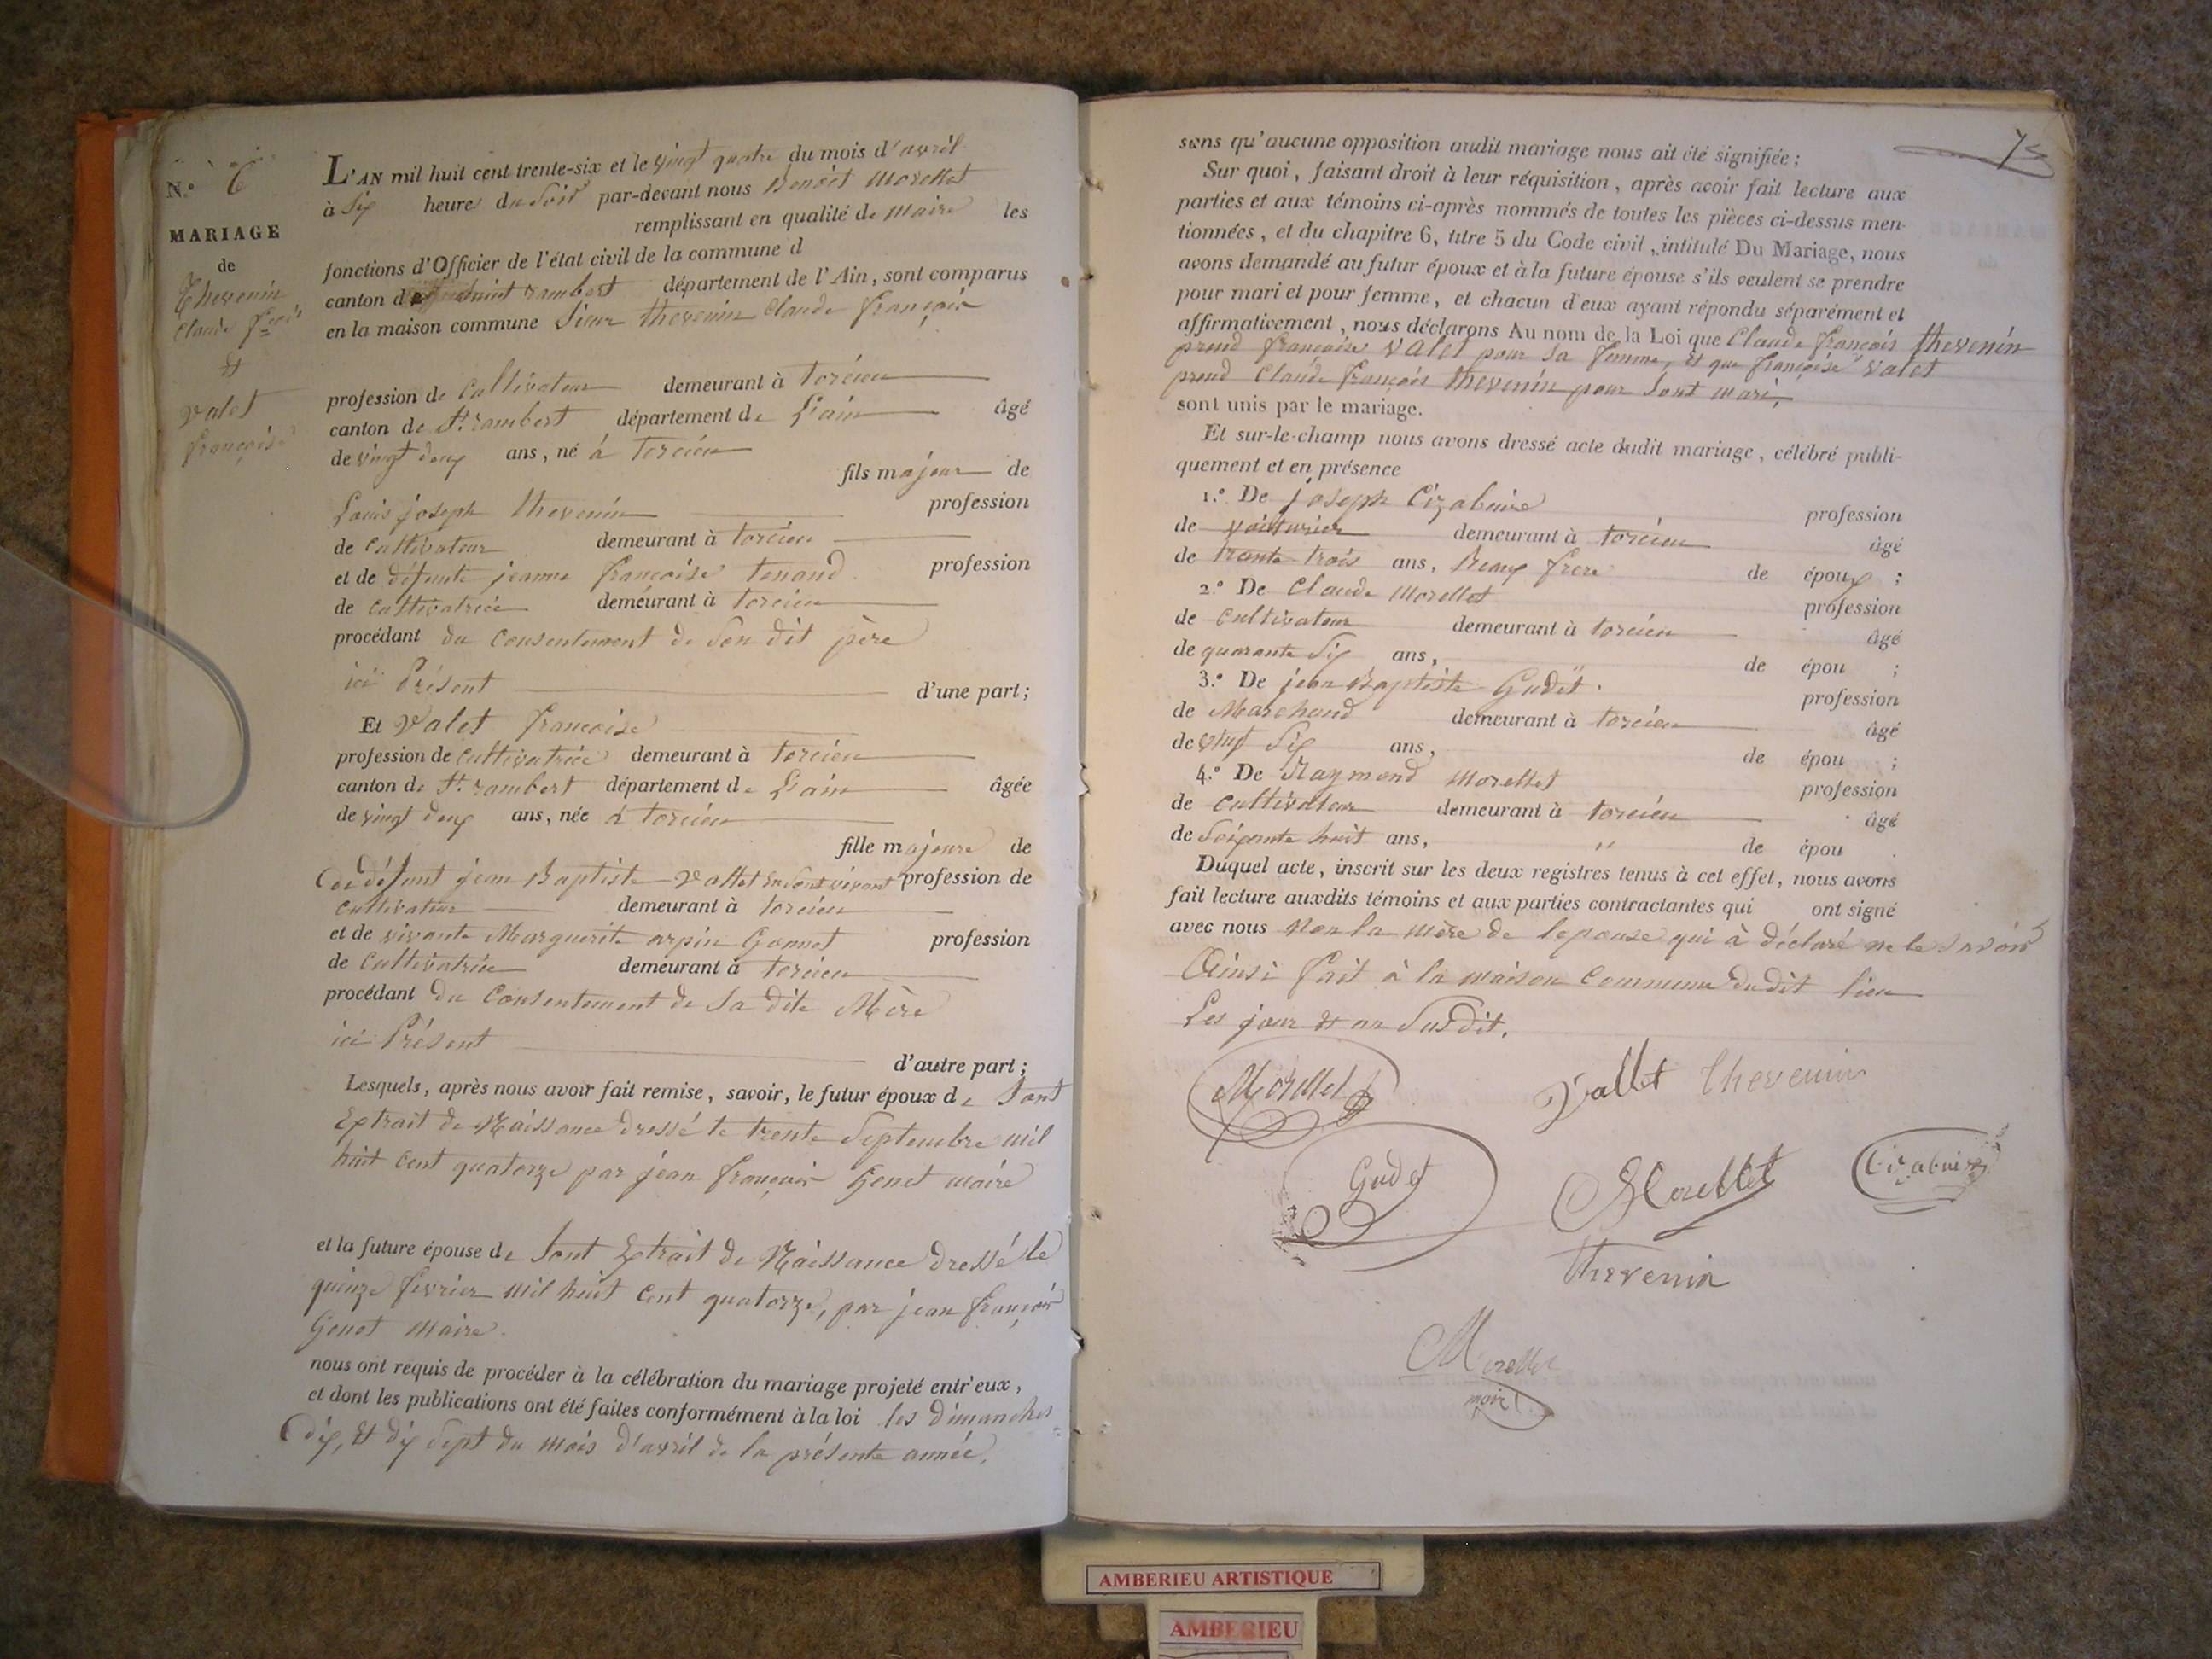 N.º 6
MARIAGE
de
Thevenin
Claude F.çois
et
valet
françoise
L'AN mil huit cent trente-six et le vingt quatre du mois d'avril
à Six heures du Soir par-devant nous Benoit Morellet
remplissant en qualité de Maire les
fonctions d'Officier de l'état civil de la commune d
canton de saint rambert département de l'Ain, sont comparus
en la maison commune Sieur thevenin Claude françois
profession de Cultivateur demeurant à torcieu
canton de St. rambert département de L'ain âgé
de vingt deux ans, né à torcieu
fils majeur de
Louis joseph thevenin profession
de Cultivateur demeurant à torcieu
et de défunte jeanne françoise tenand profession
de Cultivatrice demeurant à torcieu
procédant du Consentement de Son dit père
ici Présent d'une part;
Et Valet françoise
profession de Cultivatrice demeurant à torcieu
canton de St. rambert département de L'ain âgée
de vingt deux ans, née à torcieu
fille majeure de
de défunt jean Baptiste Vallet en Sont vivant profession de
Cultivateur demeurant à torcieu
et de vivante Marguerite arpin Gonnet profession
de Cultivatrice demeurant à torcieu
procédant du Consentement de Sa dite Mère
ici Présent d'autre part;
Lesquels, après nous avoir fait remise, savoir, le futur époux de Sont
Extrait de Naissance dressé le trente Septembre mil
huit cent quatorze par jean françois Genet maire
et la future épouse de Sont Extrait de Naissance dressé le
quinze fevrier mil huit Cent quatorze, par jean françois
Genet maire.
nous ont requis de procéder à la célébration du mariage projeté entr'eux,
et dont les publications ont été faites conformément à la loi les dimanches
dix, Et dix Sept du mois d'avril de la présente année,
75
sens qu'aucune opposition audit mariage nous ait été signifiée;
Sur quoi, faisant droit à leur réquisition, après avoir fait lecture aux
parties et aux témoins ci-après nommés de toutes les pièces ci-dessus men-
tionnées, et du chapitre 6, titre 5 du Code civil, intitulé Du Mariage, nous
avons demandé au futur époux et à la future épouse s'ils veulent se prendre
pour mari et pour femme, et chacun d'eux ayant répondu séparément et
affirmativement, nous déclarons Au nom de la Loi que Claude françois thevenin
prend françoise Valet pour Sa femme, Et que françoise Valet
prend Claude françois thevenin pour Sont mari,
sont unis par le mariage.
Et sur-le-champ nous avons dressé acte dudit mariage, célébré publi-
quement et en présence
1.º De joseph Cizabuire profession
de voiturier demeurant à torcieu âgé
de trante trois ans, Beaux frere de époux ;
2.º De Claude Morellet profession
de Cultivateur demeurant à torcieu âgé
de quarante Six ans, de épou ;
3.º De jean Baptiste Gudet. profession
de Marchand demeurant à torcieu âgé
de vingt Six ans, de épou ;
4.º De Raymond Morellet profession
de Cultivateur demeurant à torcieu âgé
de Soixante huit ans, " de épou .
Duquel acte, inscrit sur les deux registres tenus à cet effet, nous avons
fait lecture auxdits témoins et aux parties contractantes qui ont signé
avec nous Non la mère de lepouse qui à déclaré ne le Savoir
Ainsi fait à la maison Commune dudit lieu
Les jour et an Susdit.
Morellet Vallet thevenin
Gudet Morellet Cizabuire
thevenin
Morellet
maire
AMBERIEU ARTISTIQUE
AMBERIEU